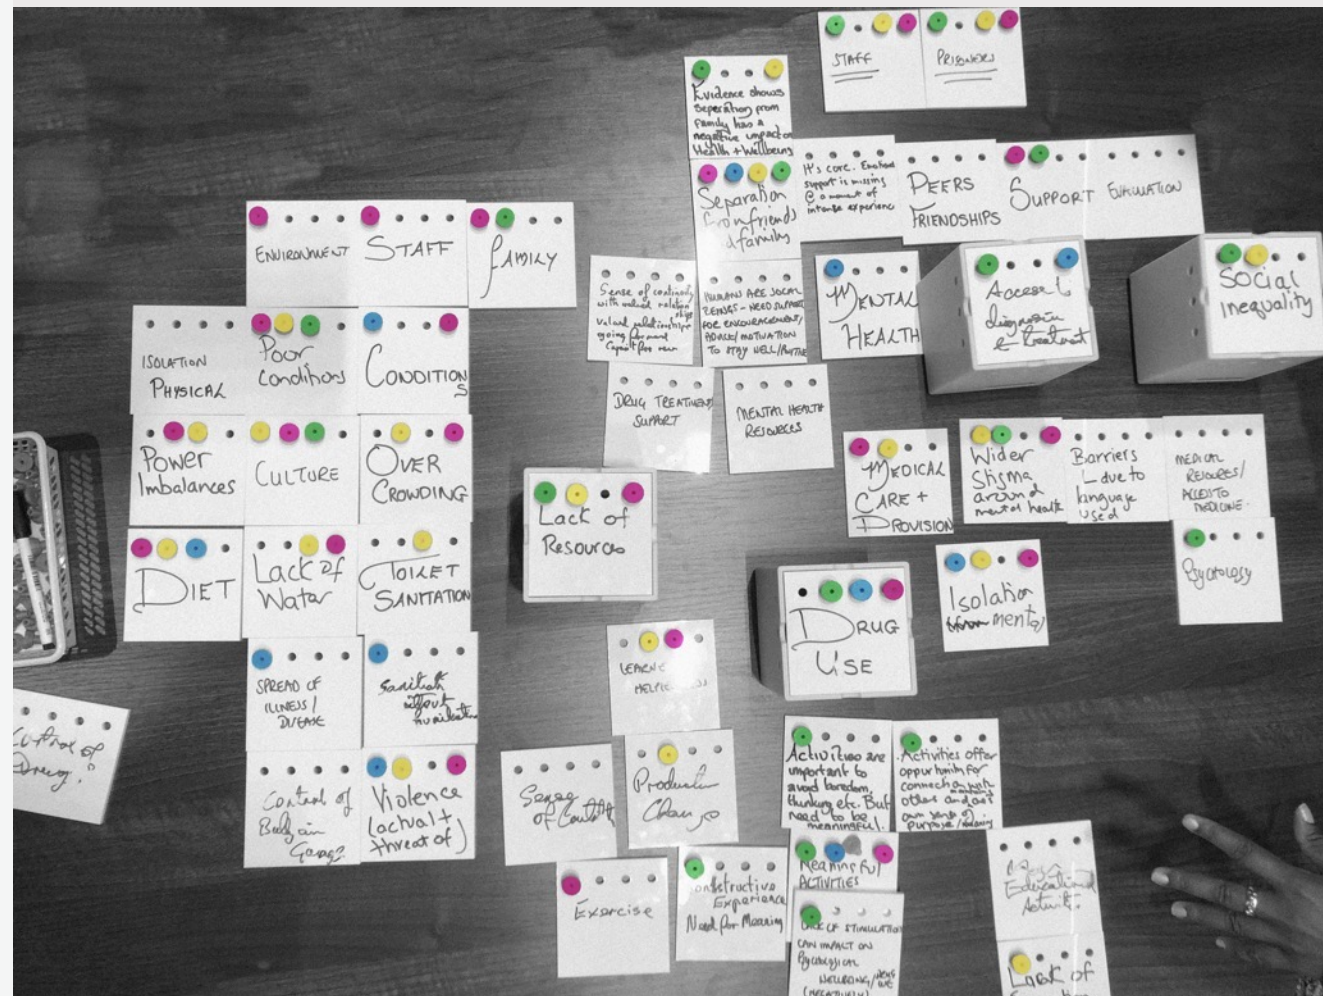 STAFF
PRISONERS
Evidence shows
seperation from
family has a
negative impact on
Health + Wellbeing
Separation
from friends
and family
It's core. Emotional
support is missing
@ a moment of
intense experience
PEERS
FRIENDSHIPS
SUPPORT
EVALUATION
ENVIRONMENT
STAFF
FAMILY
Sense of continuity
with valued relation
ships
valued relationships
going forward
HUMANS ARE SOCIAL
BEINGS - NEED SUPPORT
FOR ENCOURAGEMENT/
ADVICE/MOTIVATION
TO STAY WELL/
MENTAL
HEALTH
Access to
diagnosis
& treatment
Social
Inequality
ISOLATION
PHYSICAL
Poor
Conditions
CONDITIONS
DRUG TREATMENT
SUPPORT
MENTAL HEALTH
RESOURCES
Power
Imbalances
CULTURE
OVER
CROWDING
Lack of
Resources
MEDICAL
CARE +
PROVISION
Wider
Stigma
around
mental health
Barriers
due to
language
used
MEDICAL
RESOURCES/
ACCESS TO
MEDICINE.
Psychology
DIET
Lack of
Water
TOILET
SANITATION
DRUG
USE
Isolation
mental
SPREAD OF
ILLNESS/
DISEASE
Sanitation
without
LEARNED
HELPLESSNESS
Control of
Violence
(actual +
threat of)
Sense
of
Exercise
Constructive
Experience
Need for Meaning
Activities are
important to
avoid boredom,
thinking etc. But
need to be
meaningful.
Activities offer
opportunity for
connection with
others and
own sense of
purpose/meaning
Meaningful
ACTIVITIES
LACK OF STIMULATION
CAN IMPACT ON
Psychological
(NEGATIVELY)
Educational
Activity
Lack of